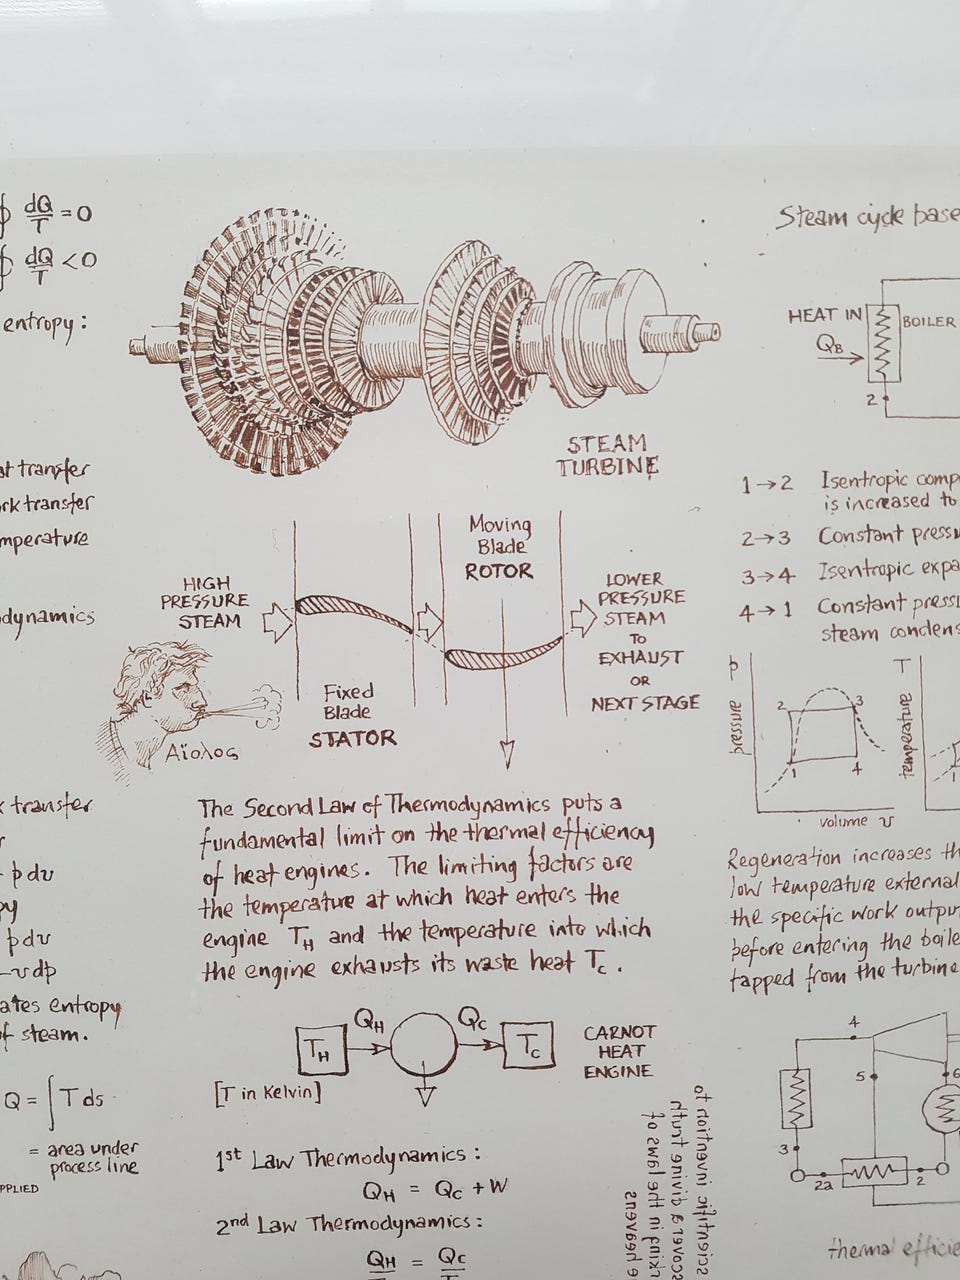 ∮ dQ/T = 0
∮ dQ/T < 0
entropy :
transfer
transfer
dynamics
transfer
p dv
p dv
-v dp
entropy
of steam.
Q = ∫ T ds
= area under
process line
STEAM
TURBINE
HIGH
PRESSURE
STEAM
Moving
Blade
ROTOR
LOWER
PRESSURE
STEAM
TO
EXHAUST
OR
NEXT STAGE
Fixed
Blade
STATOR
Αἴολος
The Second Law of Thermodynamics puts a
fundamental limit on the thermal efficiency
of heat engines. The limiting factors are
the temperature at which heat enters the
engine T_H and the temperature into which
the engine exhausts its waste heat T_C .
T_H
Q_H
Q_C
T_C
CARNOT
HEAT
ENGINE
[T in Kelvin]
1st Law Thermodynamics :
Q_H = Q_C + W
2nd Law Thermodynamics :
Q_H = Q_C
scientific invention to
divine truth
in the laws of
Steam cycle
HEAT IN
Q_B
BOILER
2
1→2 Isentropic
is increased to
2→3 Constant
3→4 Isentropic
4→1 Constant
steam
p
pressure
2
3
1
4
volume v
T
temperature
Regeneration increases
low temperature
the specific work
before entering the
tapped from the turbine
4
5
6
3
2a
2
thermal